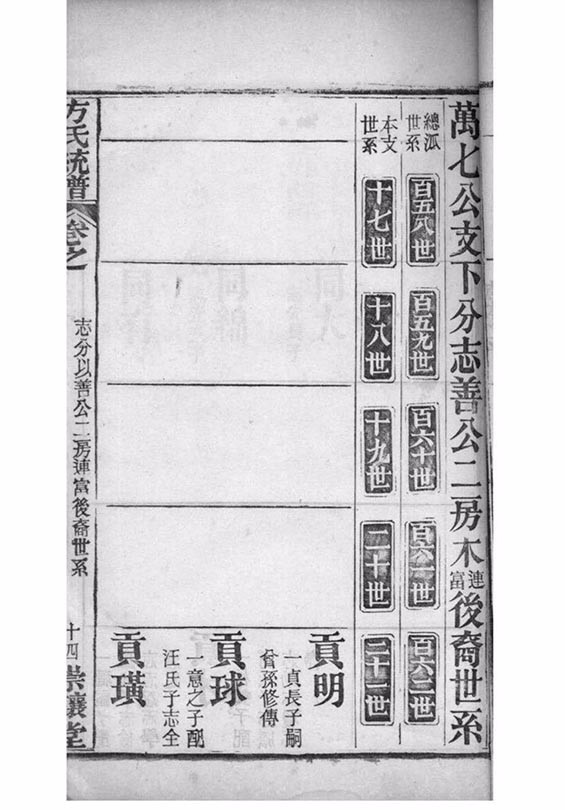 萬七公支下分志善公二房木連富後裔世系
總派世系
百五八世
百五九世
百六十世
百六一世
百六二世
本支世系
十七世
十八世
十九世
二十世
二十一世
貢明
一貞長子嗣
曾孫修傳
貢球
一意之子配
汪氏子志全
貢璜
方氏統譜
卷之
志分以善公二房連富後裔世系
十四
崇讓堂